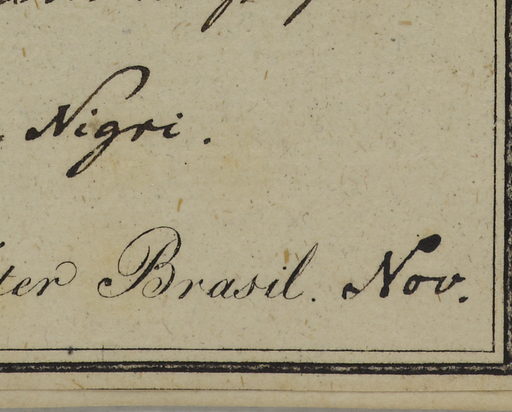 Nigri.
Brasil. Nov.